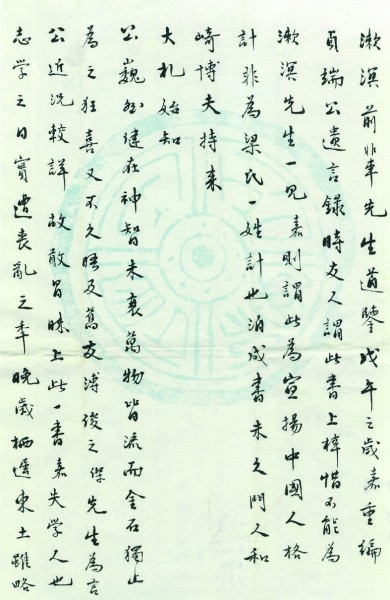 漱溟前輩先生道鑒戊午之歲嘉重編
貞端公遺言錄時友人謂此書上梓惜不能為
漱溟先生一見嘉則謂此為宣揚中國人格
計非為梁氏一姓計也洎成書未久門人和
崎博夫持來
大札始知
公巍然健在神智未衰萬物皆流而金石獨止
為之狂喜又不久晤及舊友溥俊之傑先生為言
公近況較詳故敢冒昧上此一書嘉失學人也
志學之日實遭喪亂之年晚歲栖遲東土雖略